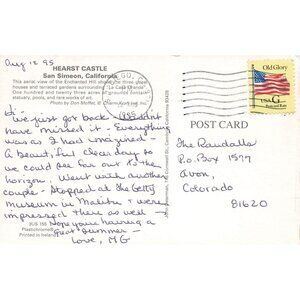 Aug 12 95
HEARST CASTLE
San Simeon, California
This aerial view of the Enchanted Hill showing the three guest
houses and terraced gardens surrounding "La Casa Grande"
One hundred and twenty three acres of grounds contain
statuary, pools, and rare works of art.
Photo by Don
Hi -
We just got back - Wouldn't
have missed it - Everything
was as I had imagined
A beautiful clear day so
we could see far out to the
horizon. Went with another
couple - Stopped at the Getty
museum in Malibu & were
impressed there as well -
Hope you're having a
great summer -
Love, MG
3US
Plastichrome
Printed in Ireland
Old Glory
USA G
Postcard Rate
POST CARD
The Randalls
P.O. Box 1577
Avon,
Colorado
81620